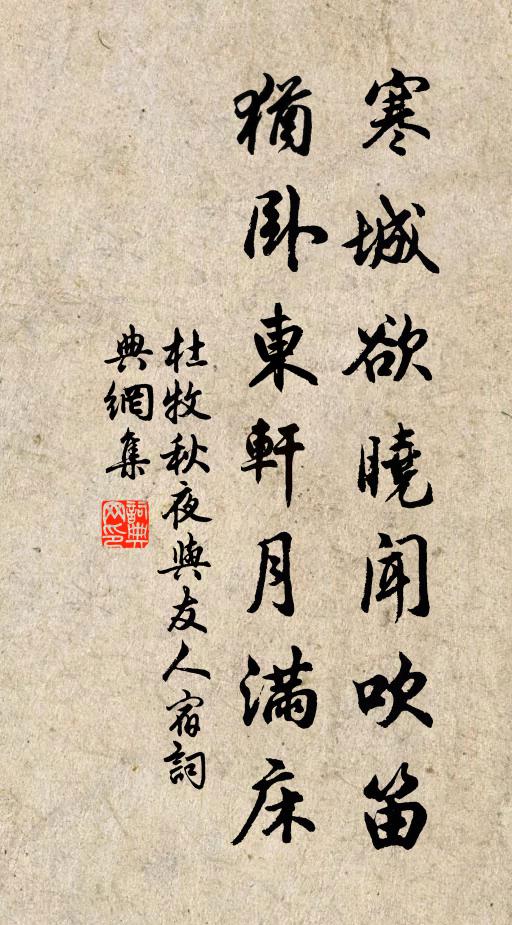 寒城欲曉聞吹笛
猶卧東軒月滿床
杜牧秋夜與友人宿詞
典網集
詞典網印